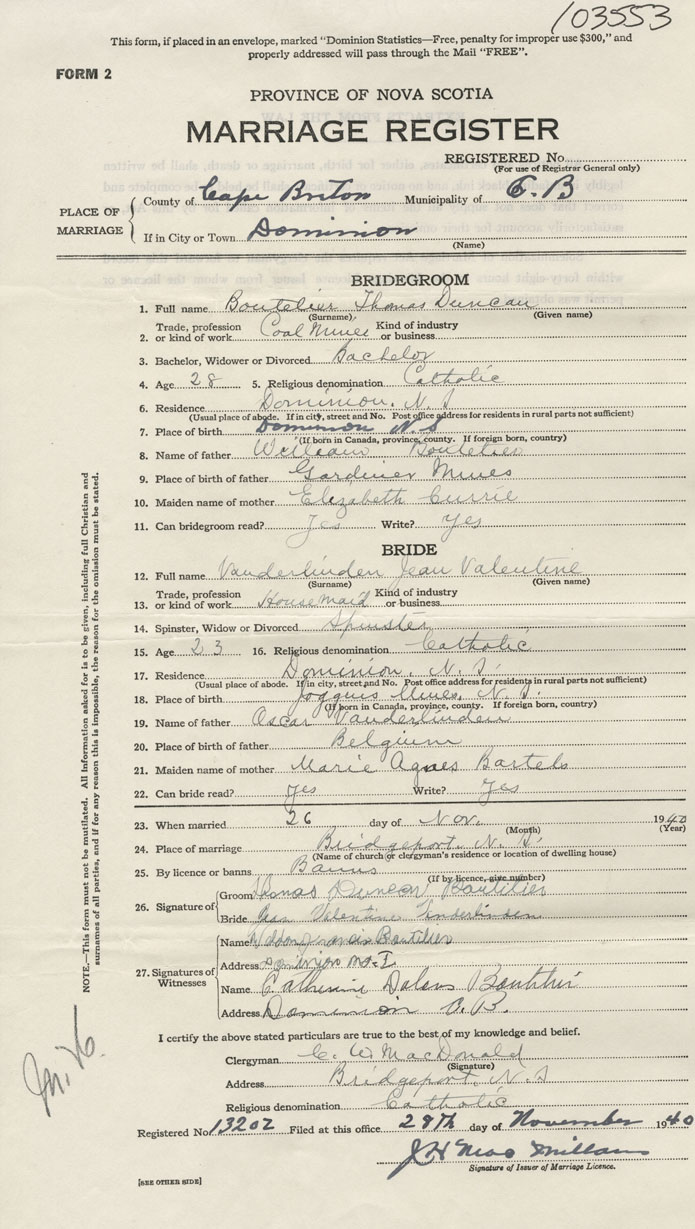 103553
This form, if placed in an envelope, marked "Dominion Statistics—Free, penalty for improper use $300," and
properly addressed will pass through the Mail "FREE".
FORM 2
PROVINCE OF NOVA SCOTIA
MARRIAGE REGISTER
REGISTERED No.
(For use of Registrar General only)
PLACE OF MARRIAGE
County of Cape Breton Municipality of C. B
If in City or Town Dominion
(Name)
BRIDEGROOM
1. Full name Boutelier Thomas Duncan
(Surname) (Given name)
2. Trade, profession or kind of work Coal Miner Kind of industry or business
3. Bachelor, Widower or Divorced Bachelor
4. Age 28 5. Religious denomination Catholic
6. Residence Dominion. N. S
(Usual place of abode. If in city, street and No. Post office address for residents in rural parts not sufficient)
7. Place of birth Dominion N.S
(If born in Canada, province, county. If foreign born, country)
8. Name of father William Boutelier
9. Place of birth of father Gardiner Mines
10. Maiden name of mother Elizabeth Currie
11. Can bridegroom read? Yes Write? Yes
BRIDE
12. Full name Vanderlinden Jean Valentine
(Surname) (Given name)
13. Trade, profession or kind of work Housemaid Kind of industry or business
14. Spinster, Widow or Divorced Spinster
15. Age 23 16. Religious denomination Catholic
17. Residence Dominion. N. S.
(Usual place of abode. If in city, street and No. Post office address for residents in rural parts not sufficient)
18. Place of birth Joggins Mines, N. S.
(If born in Canada, province, county. If foreign born, country)
19. Name of father Oscar Vanderlinden
20. Place of birth of father Belgium
21. Maiden name of mother Marie Agnes Bartels
22. Can bride read? Yes Write? Yes
23. When married 26 day of Nov. 1940
(Month) (Year)
24. Place of marriage Bridgeport. N. S.
(Name of church or clergyman's residence or location of dwelling house)
25. By licence or banns Banns
(If by licence, give number)
26. Signature of
Groom Thomas Duncan Boutilier
Bride Jean Valentine
27. Signatures of Witnesses
Name Francis Boutilier
Address Dominion
Name Catherine Boutilier
Address Dominion C.B.
I certify the above stated particulars are true to the best of my knowledge and belief.
Clergyman C. W. MacDonald
(Signature)
Address Bridgeport, N. S
Religious denomination Catholic
Registered No. 13202 Filed at this office 29th day of November 1940
J H MacMillan
Signature of Issuer of Marriage Licence.
[SEE OTHER SIDE]
NOTE.—This form must not be mutilated. All information asked for is to be given, including full Christian and
surnames of all parties, and if for any reason this is impossible, the reason for the omission must be stated.